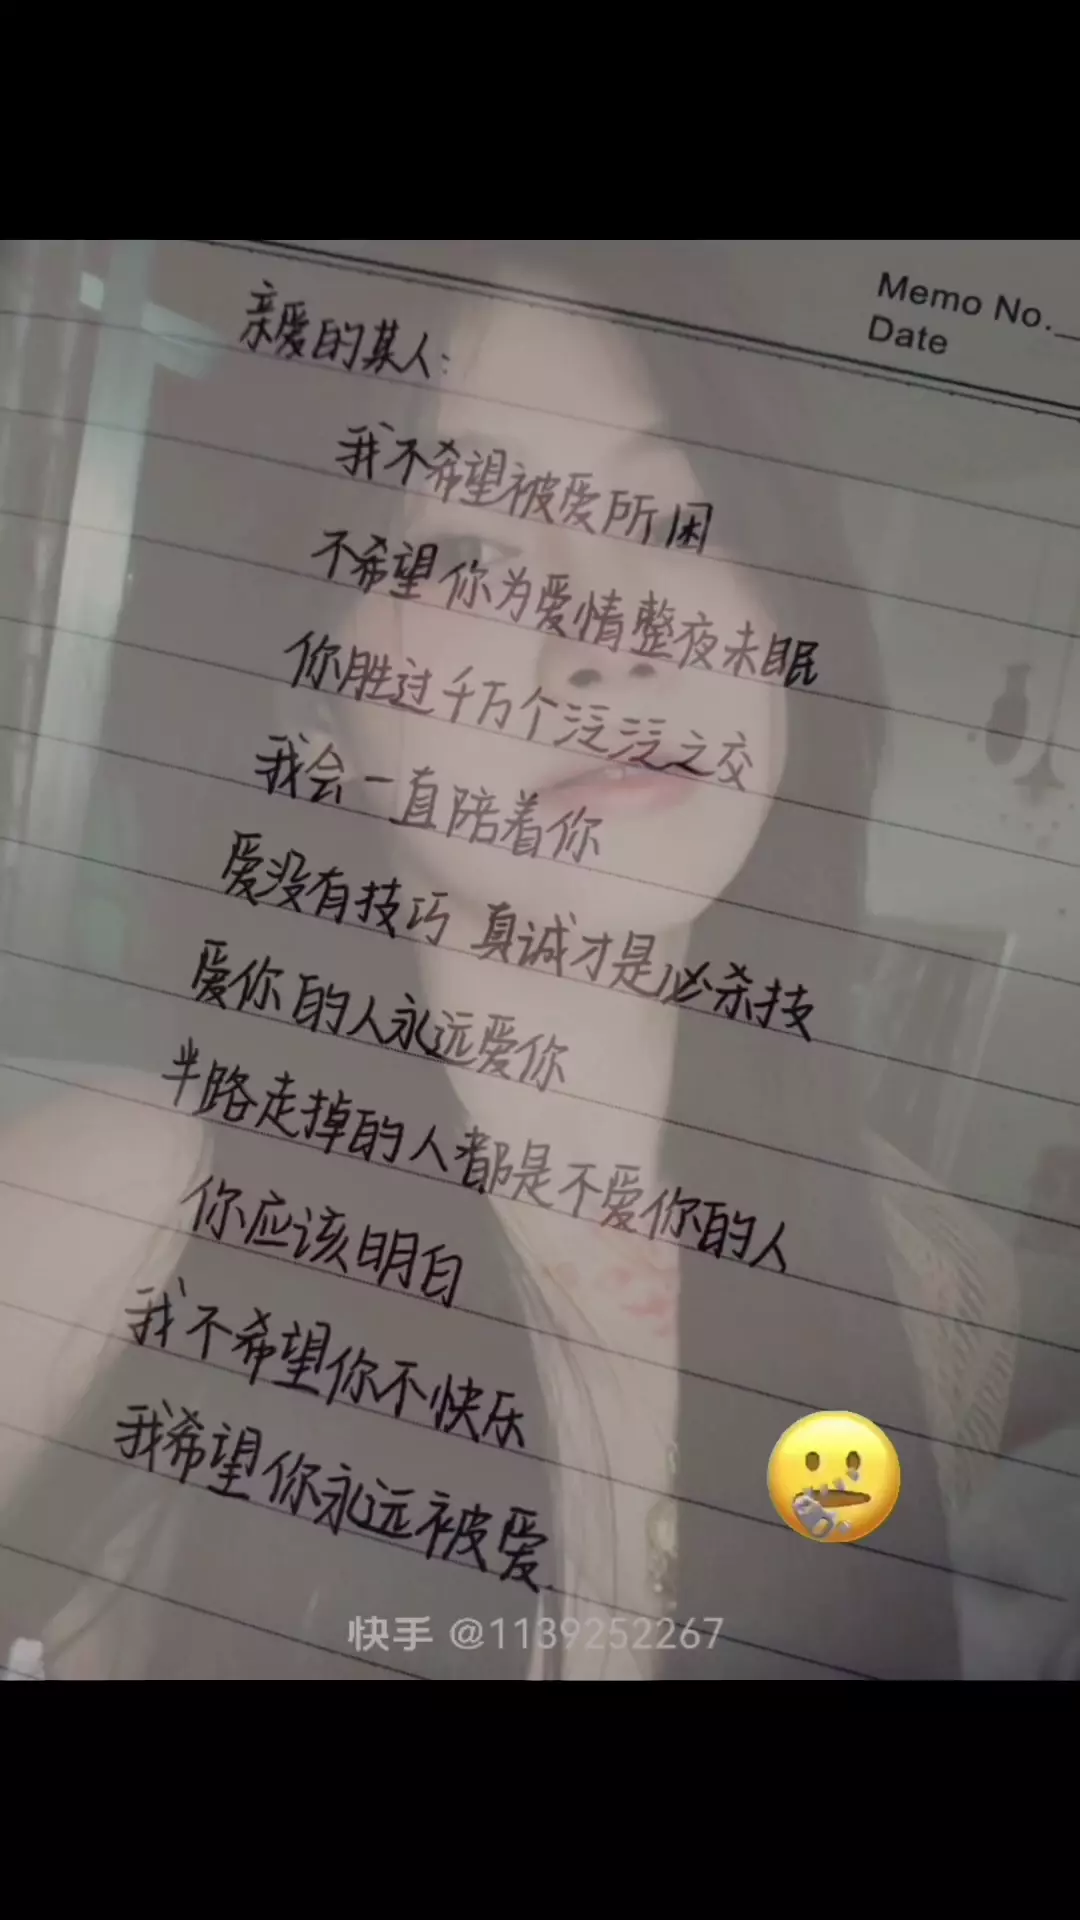 Memo No.
Date
亲爱的某人:
我不希望被爱所困
不希望你为爱情整夜未眠
你胜过千万个泛泛之交
我会一直陪着你
爱没有技巧 真诚才是必杀技
爱你的人永远爱你
半路走掉的人都是不爱你的人
你应该明白
我不希望你不快乐
我希望你永远被爱.
快手 @1139252267